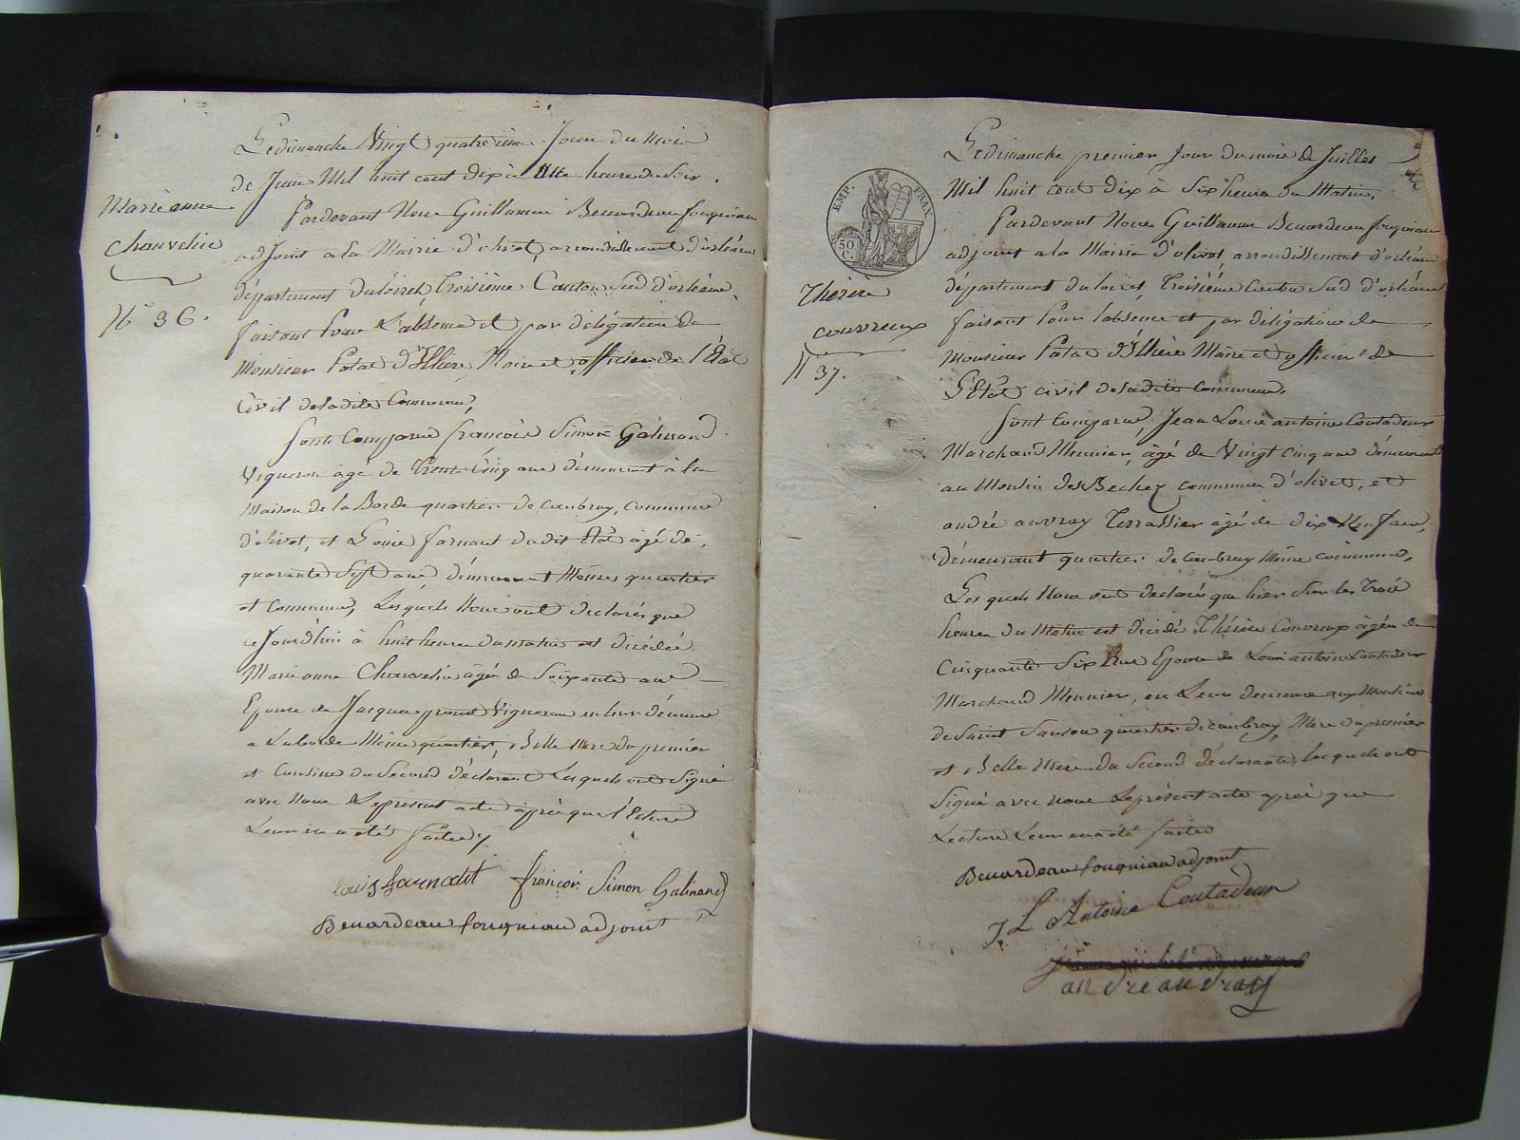 Marie anne
Chauvelin
N° 36.
Le dimanche Vingt quatrieme Jour du mois
de Juin Mil huit cent dix à heure du Soir.
Pardevant Nous Guillaume Benardeau fougniau
adjoint a la Mairie d'olivet arrondissement d'orléans
département du loiret, troisième Canton Sud d'orléans,
faisant Pour L'absence et par délégation de
Monsieur Patas d'Illiers, Maire et officier de l'État
Civil de ladite Commune,
Sont Comparus françois Simon Galinand
Vigneron âgé de trente Cinq ans demeurant à la
Maison de la Borde quartier de Caubray, Commune
d'olivet, et Louis farnault dudit état âgé de
quarante Sept ans, demeurant Mêmes quartier
et Commune, Lesquels Nous ont déclarés que
ce Jourd'hui à huit heures du matin est décédée
Marie anne Chauvelin âgée de Soixante ans
Epouse de Jacques Vigneron en leur demeure
a Laborde Même quartier, Belle Mere du premier
et Cousine du Second déclarant Lesquels ont Signé
avec Nous Le present acte après que l'Ecture
Leur en a été faite
Louis françois Simon Galinand
Benardeau fougniau adjoint
EMP. FRAN.
50 C.
Thérèse
couvreux
N° 37.
Le dimanche premier Jour du mois de Juillet
Mil huit cent dix à Six heures du Matin.
Pardevant Nous Guillaume Benardeau fougniau
adjoint a la Mairie d'olivet arrondissement d'orléans
département du loiret, Troisième Canton Sud d'orléans
faisant Pour l'absence et par délégation de
Monsieur Patas d'Illiers Maire et officier de
L'Etat civil de ladite Commune,
Sont Comparus Jean Louis antoine Coutadeur
Marchand Meunier, âgé de Vingt Cinq ans demeurant
au Moulin des Bechez commune d'olivet, et
andré auvray Terrassier âgé de dix Neuf ans,
demeurant quartier de Caubray Même commune,
Les quels Nous ont déclarés que hier Sur les Trois
heures du Matin est décédé Thérèse Couvreux âgée de
Cinquante Six ans Epouse de Louis antoine Coutadeur
Marchand Meunier, en Leur demeure aux Moulins
de Saint Sanson quartier de caubray, Mere du premier
et Belle Mere du Second déclarants, lesquels ont
Signé avec nous Le présent acte après que
Lecture Leur en a été faite
Benardeau fougniau adjoint
J. L Antoine Coutadeur
andre auvray